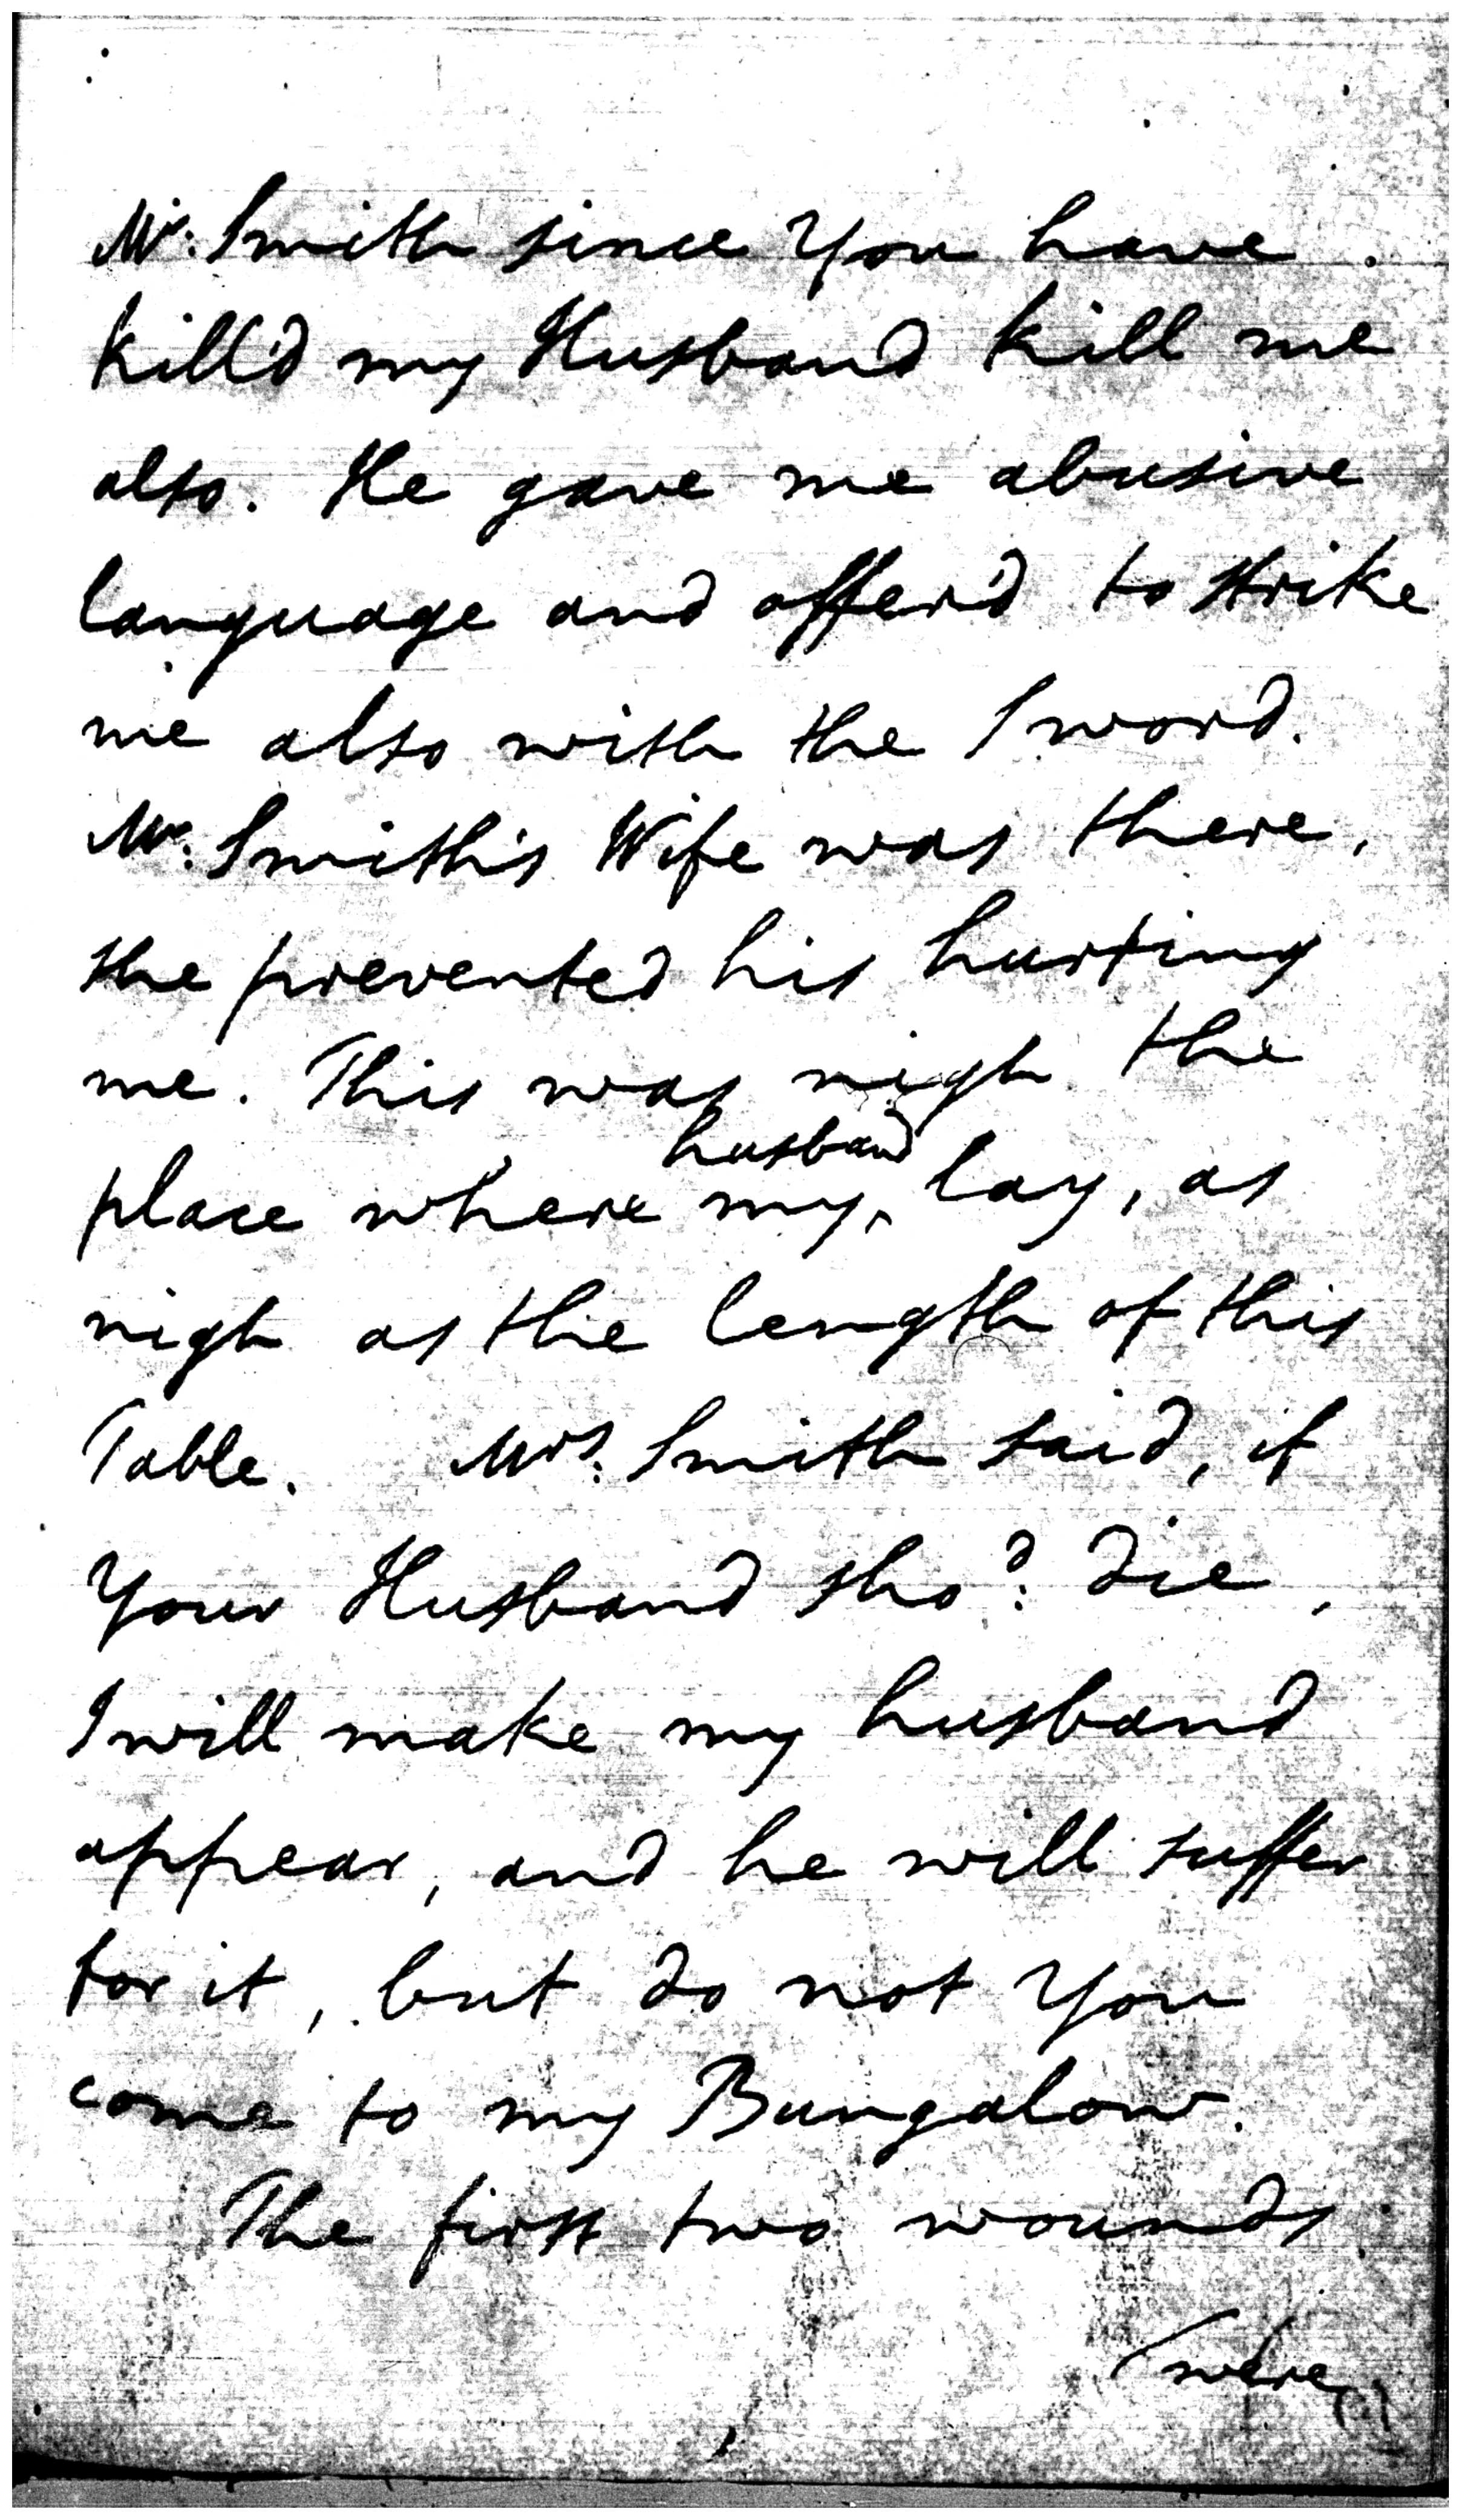 Mr. Smith since You have
kill'd my Husband kill me
also. He gave me abusive
language and offer'd to strike
me also with the Sword.
Mr. Smith's Wife was there,
she prevented his hurting
me. This was nigh the
place where my husband lay, as
nigh as the length of this
Table. Mrs. Smith said, if
Your Husband sho.d die,
I will make my husband
appear, and he will suffer
for it, but do not You
come to my Bungalow.
The first two wounds
were